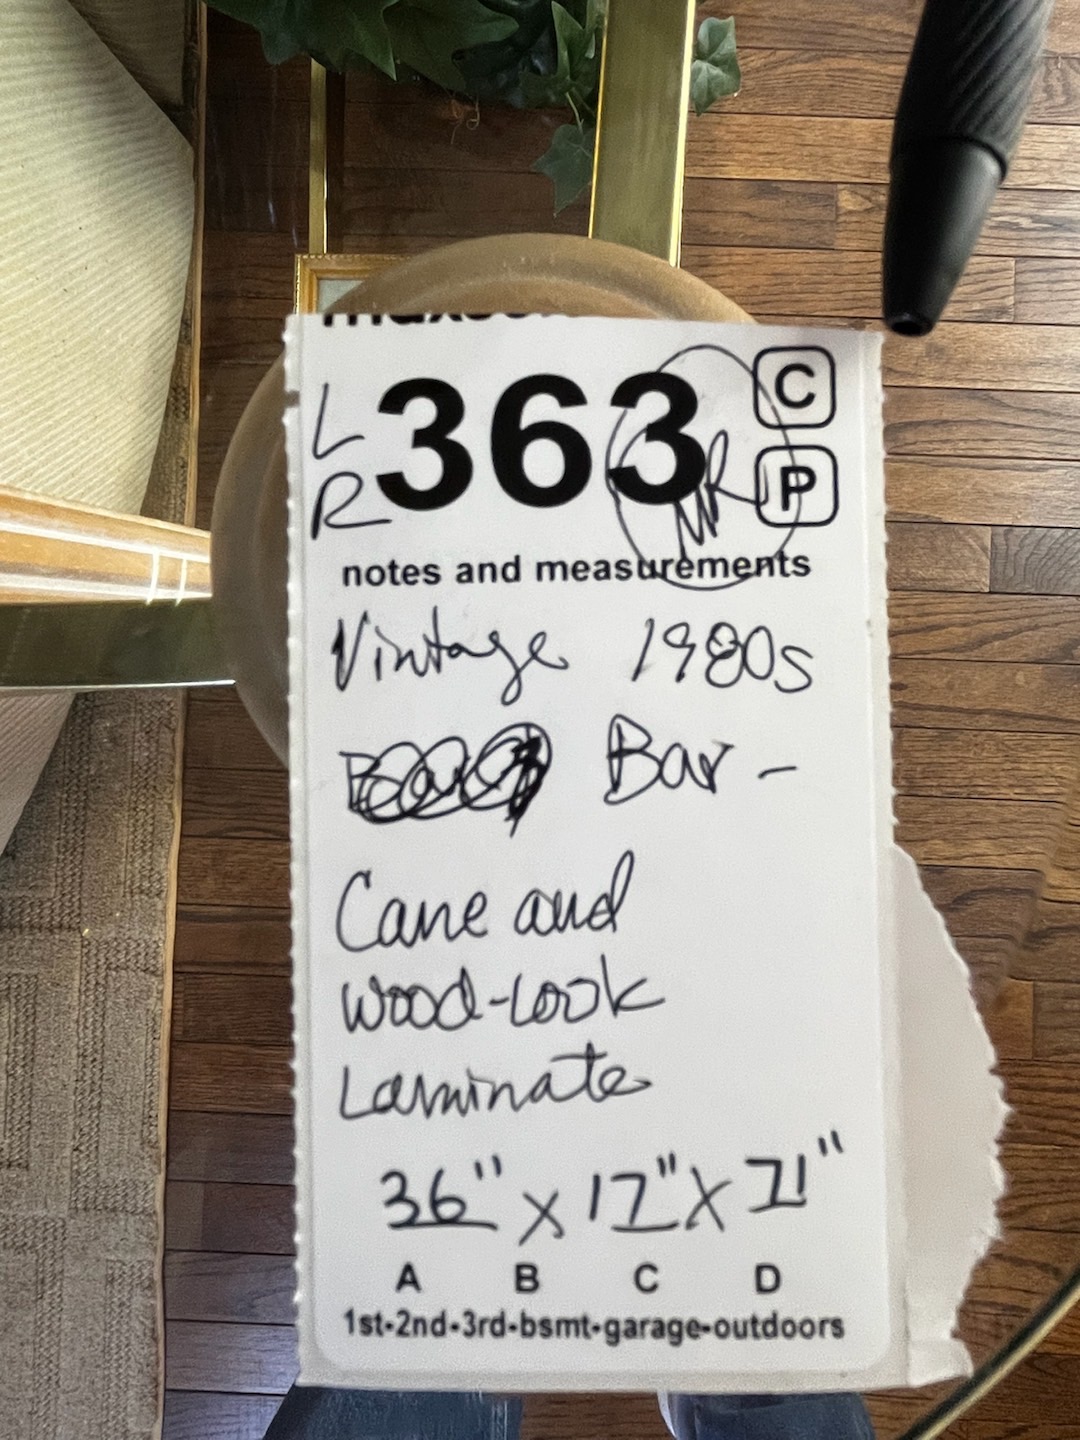 L 363 C
R NR P
notes and measurements
Vintage 1980s
Bar -
Cane and
wood-look
Laminate
36" x 17" x 71"
A B C D
1st-2nd-3rd-bsmt-garage-outdoors